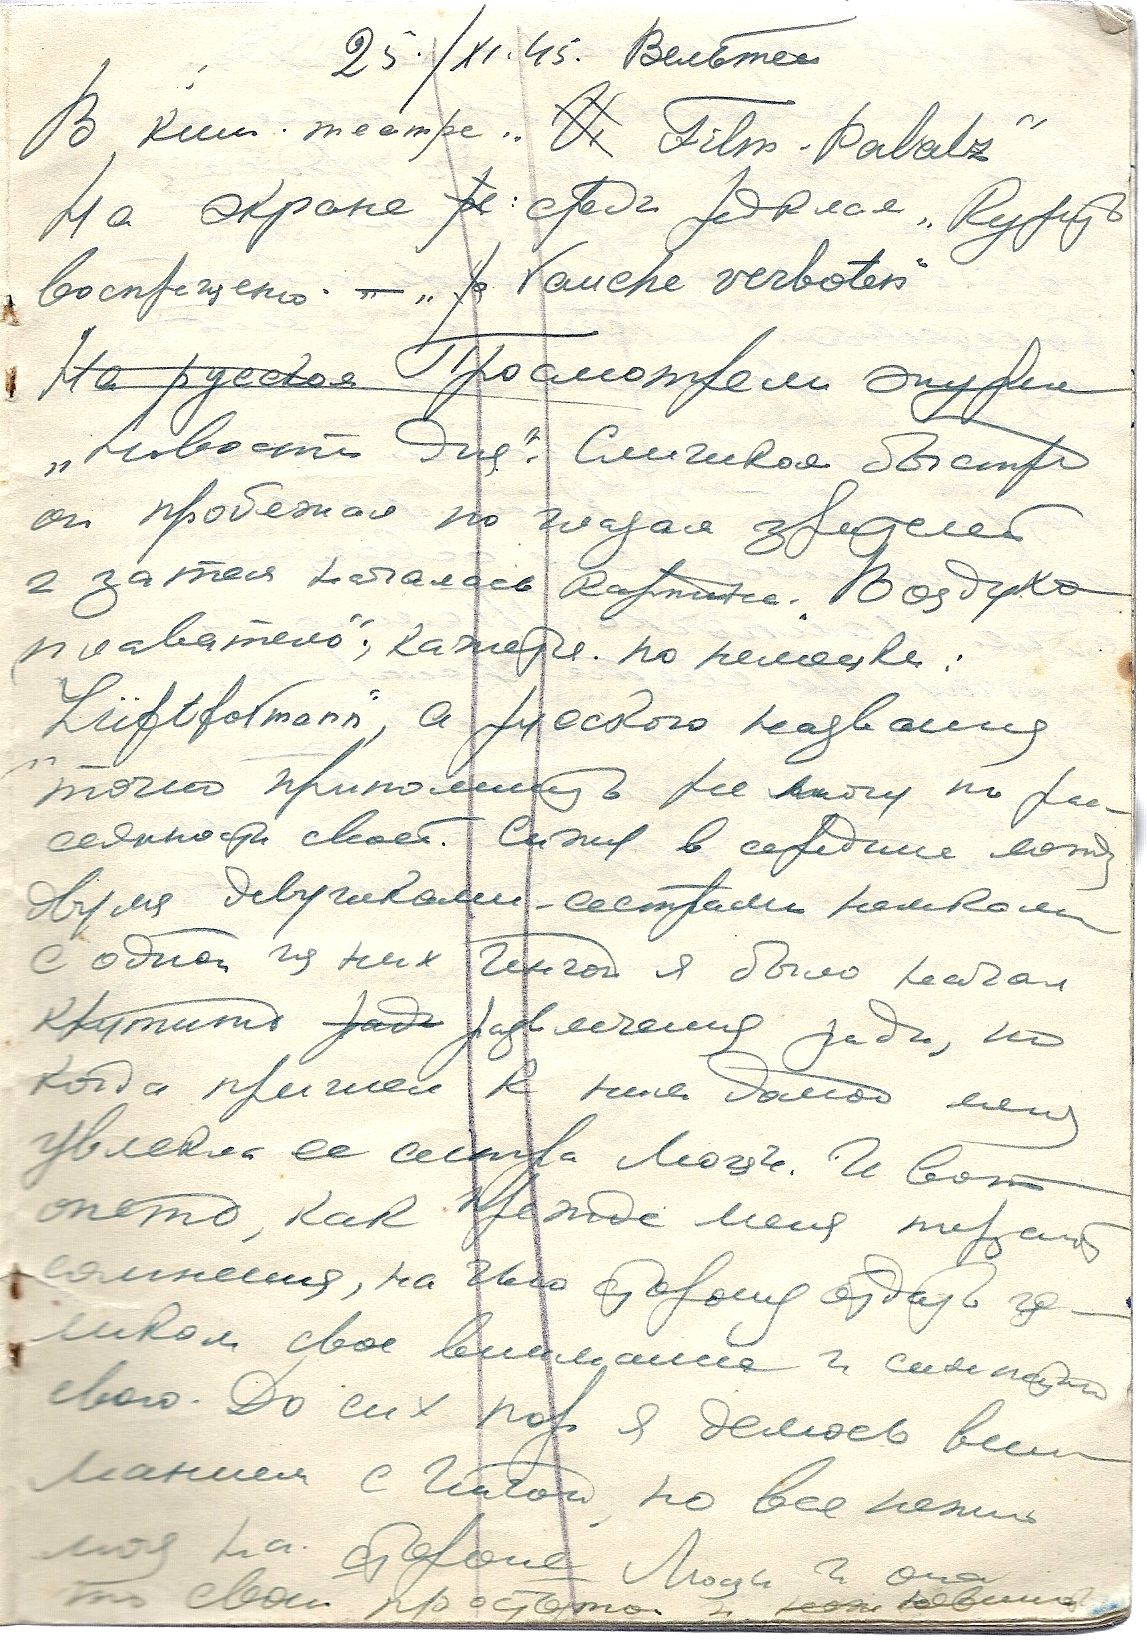 25./XI.45. Вельтен
В кино-театре „Film-Palatz"
На экране: среди реклам „Курить
воспрещено" – „Rauche verboten"
На русском Просмотрели журнал
„Новости дня". Слишком быстро
он пробежал по глазам зрителей
и затем началась картина. „Воздухо
плаватель", кажется. по немецки:
„Lüftfotmann", а русского названия
точно припомнить не могу по рас-
сеянности своей. Сижу в середине между
двумя девушками-сестрами немками
с одной из них Ингой я было начал
крутить ради развлечения ради, но
когда пришел к ним домой меня
увлекла ее сестра Моци. И вот
опять, как прежде меня терзают
сомнения, на чью сторону отдать це-
ликом свое внимание и симпатию
свою. До сих пор я делюсь вни
манием с Ингой, но все
моя на стороне Моци и она
своей простотой и